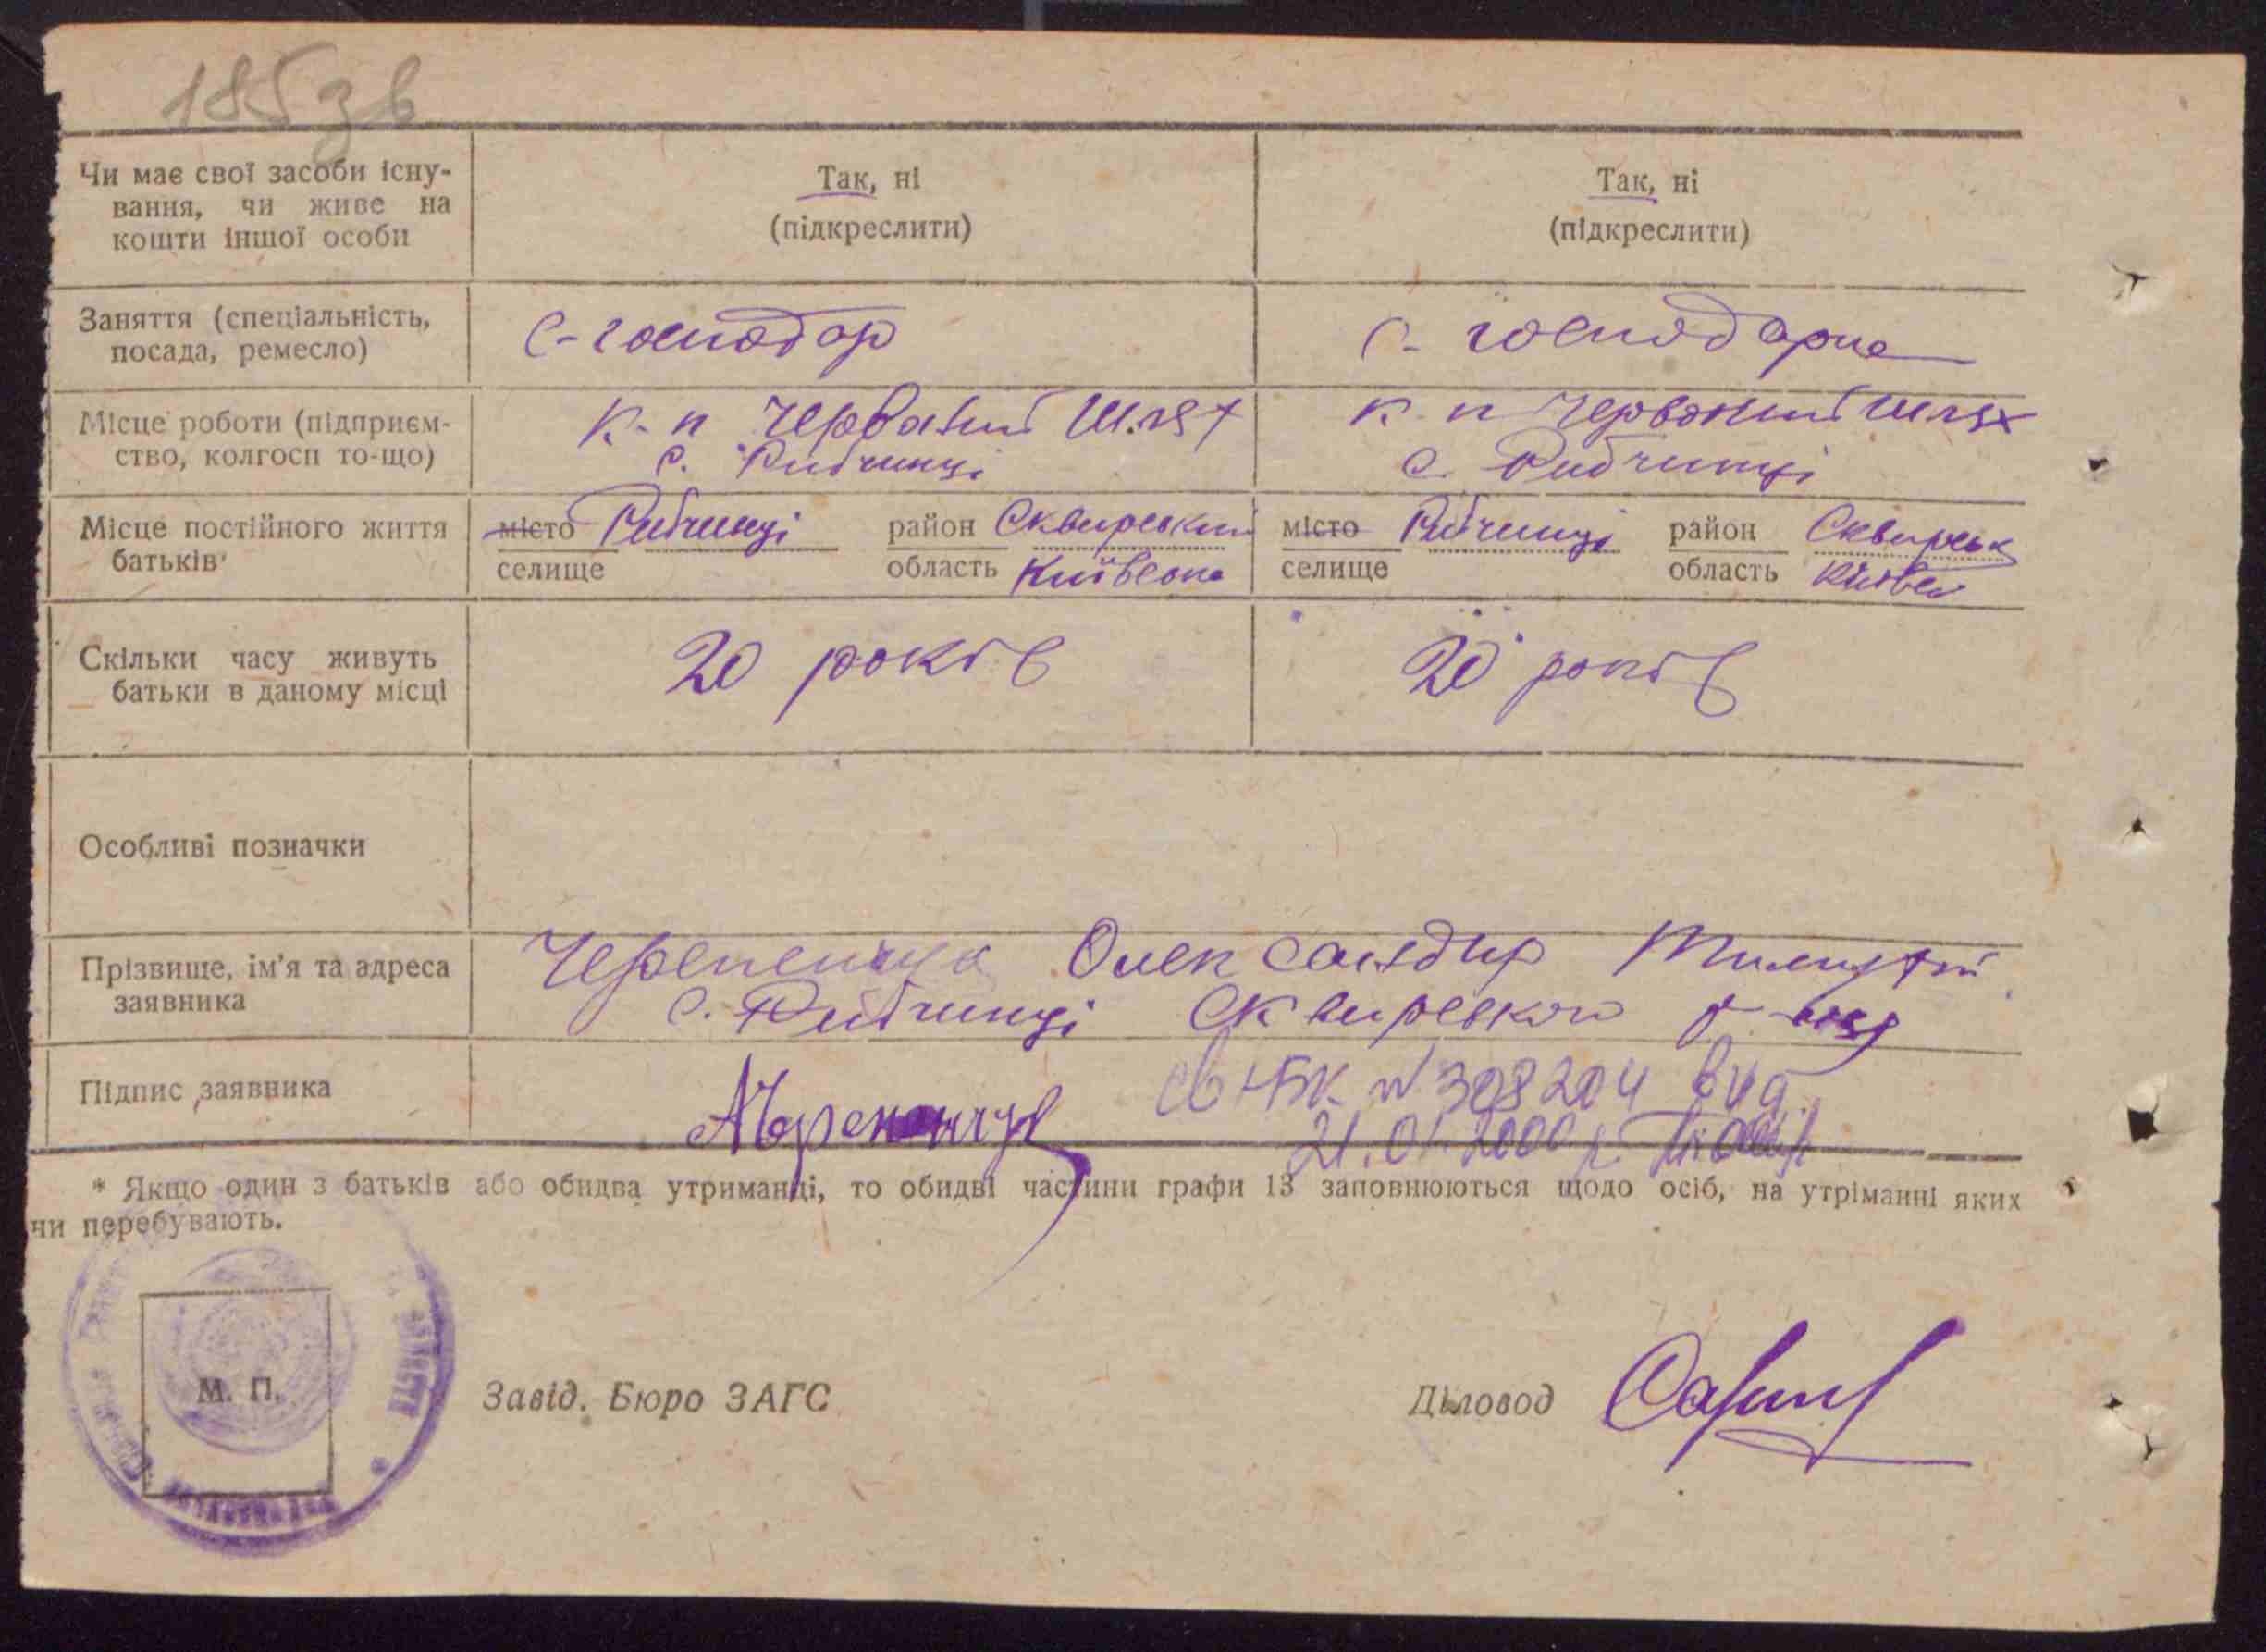 185 зв
Чи має свої засоби існу-
вання, чи живе на
кошти іншої особи
Так, ні
(підкреслити)
Так, ні
(підкреслити)
Заняття (спеціальність,
посада, ремесло)
С-господар
С-господарка
Місце роботи (підприєм-
ство, колгосп то-що)
к-п Червоний Шлях
с. Рибчинці
к-п Червоний Шлях
с. Рибчинці
Місце постійного життя
батьків
місто Рибчинці район Сквирський
селище область Київсько
місто Рибчинці район Сквирськ
селище область
Скільки часу живуть
батьки в даному місці
20 років
20 років
Особливі позначки
Прізвище, ім'я та адреса
заявника
Черепенчук Олександир
с. Рибчинці Сквирського р-ну
Підпис заявника
св І-БК № 308204 від
21.01.2000 р.
* Якщо один з батьків або обидва утриманці, то обидві частини графи 13 заповнюються щодо осіб, на утріманні яких
чи перебувають.
М. П.
Завід. Бюро ЗАГС
Діловод